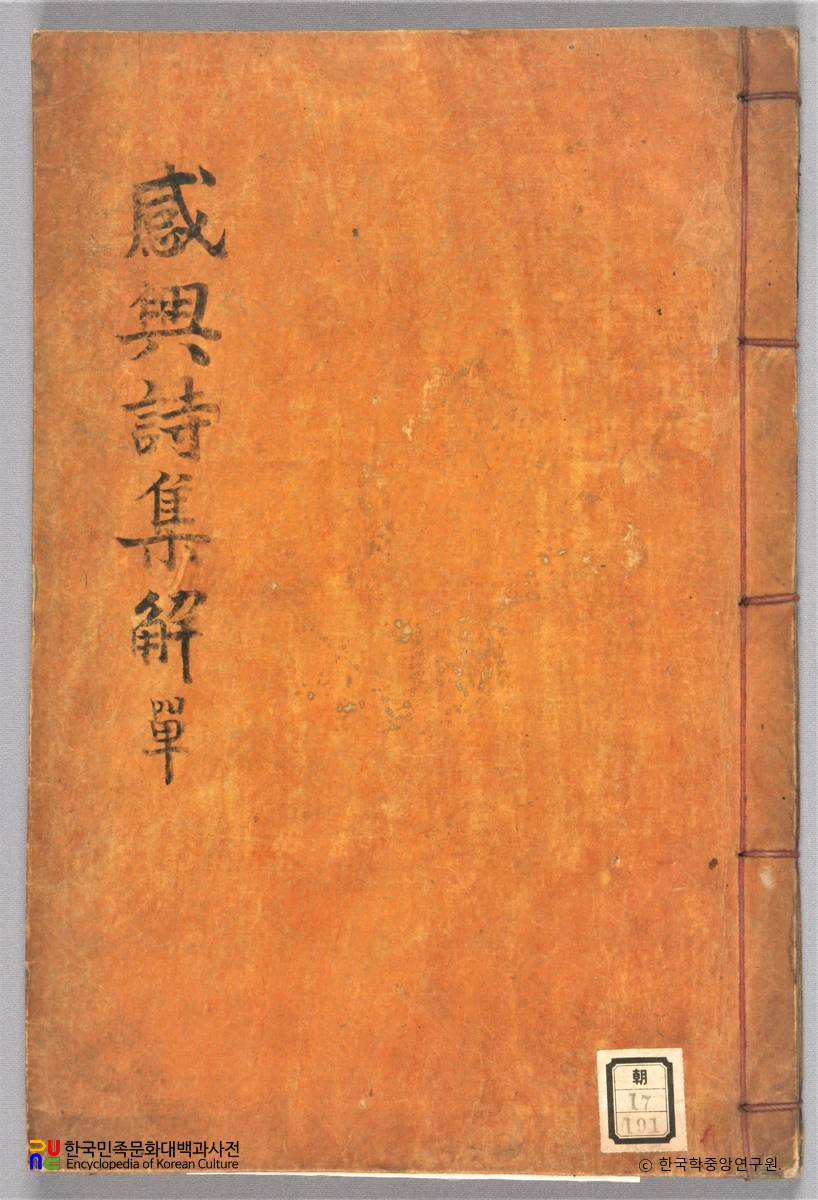 感興詩集解 單
朝
17
191
한국민족문화대백과사전
Encyclopedia of Korean Culture
© 한국학중앙연구원